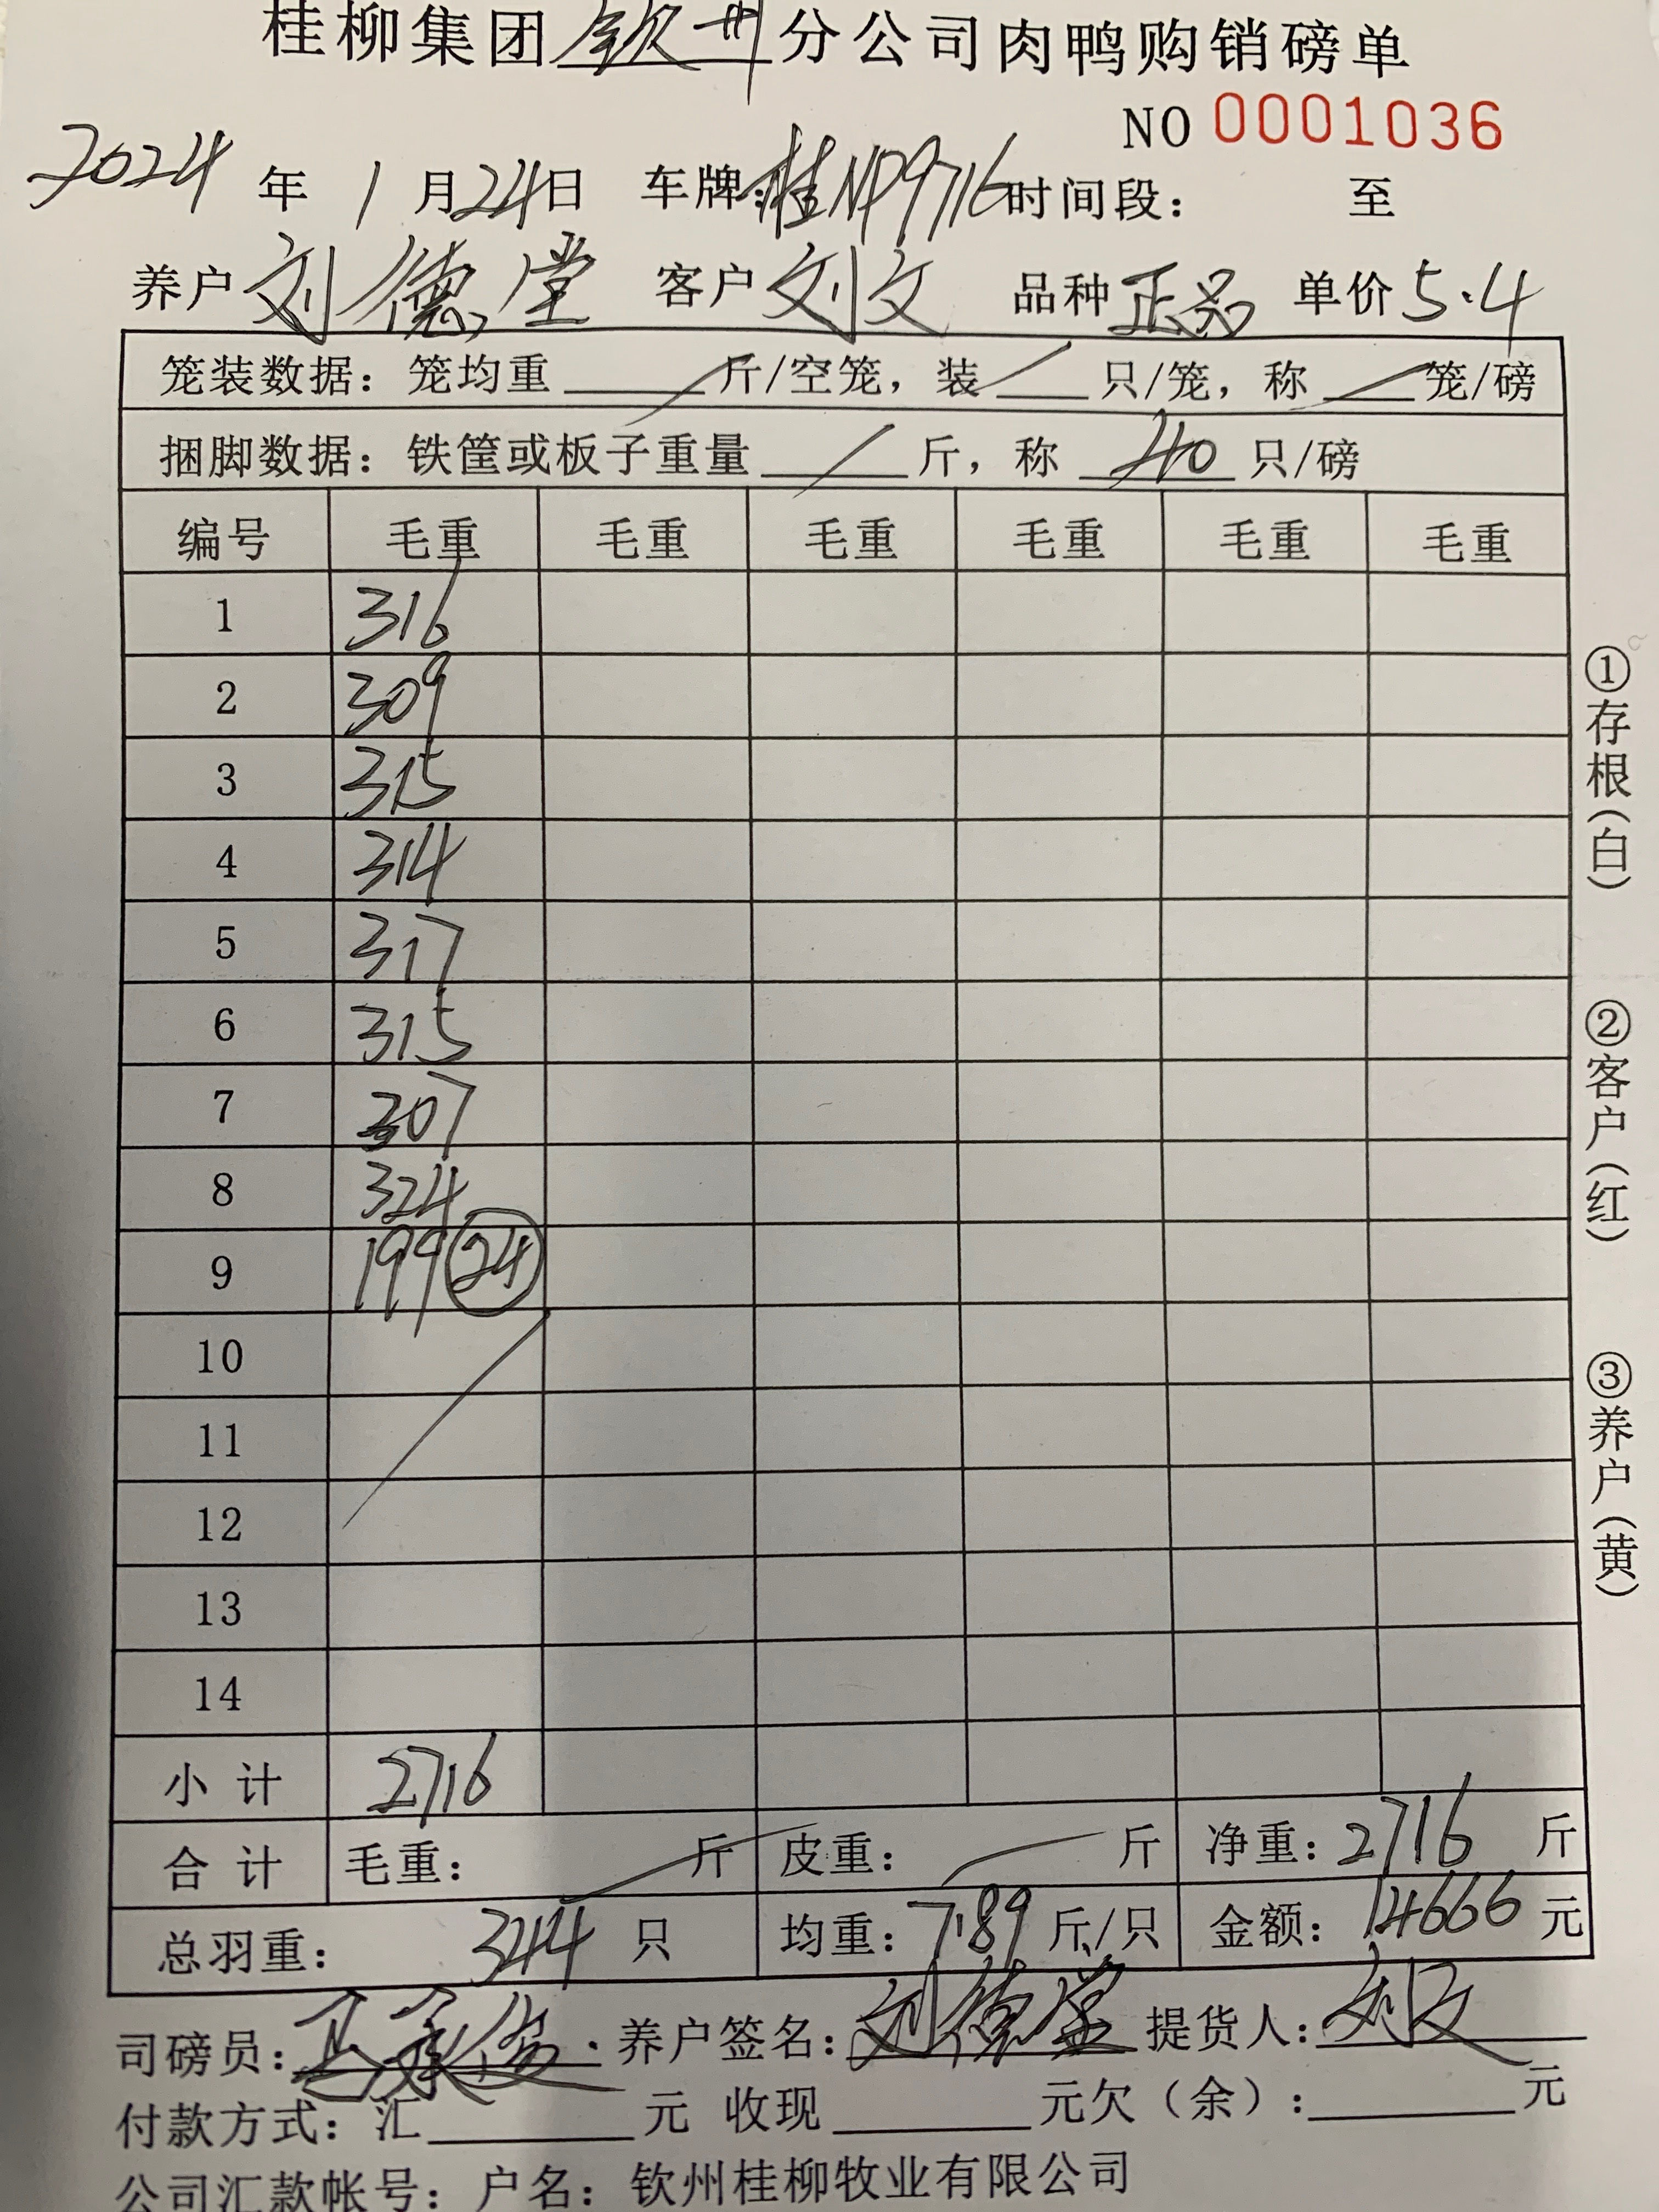 桂柳集团钦州分公司肉鸭购销磅单
NO 0001036
2024年1月24日 车牌:桂NP9716时间段: 至
养户刘德堂 客户刘文 品种正品 单价5.4
笼装数据:笼均重 / 斤/空笼,装 / 只/笼,称 / 笼/磅
捆脚数据:铁筐或板子重量 / 斤,称 40 只/磅
编号 毛重 毛重 毛重 毛重 毛重 毛重
1 316
2 309
3 315
4 314
5 317
6 315
7 307
8 324
9 199 24
10
11
12
13
14
小计 2716
合计 毛重: / 斤 皮重: / 斤 净重:2716斤
总羽重:344只 均重:7.89斤/只 金额:14666元
司磅员: 养户签名:刘德堂 提货人:刘文
付款方式:汇 元 收现 元欠(余): 元
公司汇款帐号:户名:钦州桂柳牧业有限公司
①存根(白)
②客户(红)
③养户(黄)